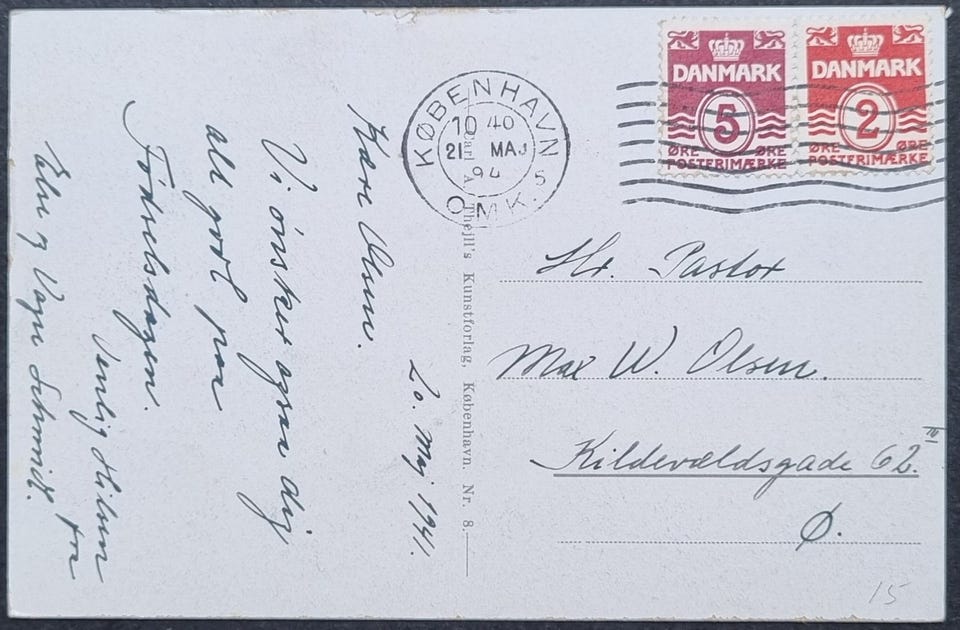 20. Maj 1941.
Kære Olsen.
Vi ønsker ogsaa dig
alt godt paa
Fødselsdagen.
Venlig Hilsen fra
Else og Vagn Schmidt.
Carl A. Thejll's Kunstforlag, København. Nr. 8.
KØBENHAVN
10 40
21 MAJ
94
5
OMK.
DANMARK
5
ØRE ØRE
POSTFRIMÆRKE
DANMARK
2
ØRE ØRE
POSTFRIMÆRKE
Hr. Pastor
Max W. Olsen.
Kildevældsgade 62.
Ø.
15